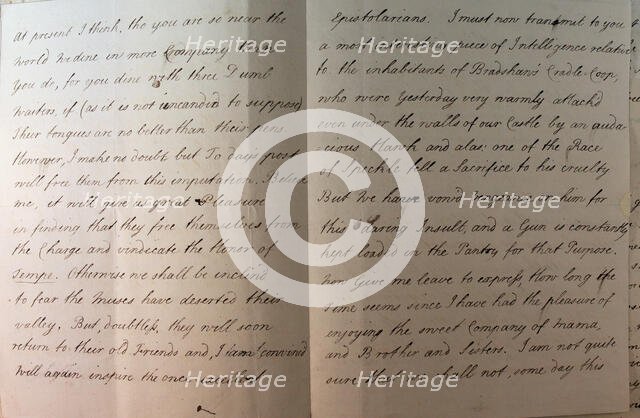 at present I think, tho you are so near the
World we dine in more Company than
You do, for you dine with three Dumb
Waiters, if (as it is not uncandid to suppose)
Their tongues are no better than their pens.
However, I make no doubt but To days post
will free them from this imputation. Believe
me, it will give us great Pleasure
in finding that they free themselves from
the Charge and vindicate the Honor of
Tempe. Otherwise we shall be inclind
to fear the Muses have deserted their
valley. But, doubtless, they will soon
return to their old Friends and I am convinced
Will again inspire the once
Epistolarians. I must now transmit to you
a most piece of Intelligence relative
to the inhabitants of Bradshaw's Cradle-Coop,
who were Yesterday very warmly attack'd
even under the walls of our Castle by an auda-
cious Hawk and alas! one of the Race
of Speckle fell a Sacrifice to his cruelty
But we have vow'd vengeance on him for
this daring Insult, and a Gun is constantly
kept loaded in the Pantry for that Purpose.
Now Give me leave to express, How long the
Time seems since I have had the pleasure of
enjoying the sweet Company of Mama,
and Brother and Sisters. I am not quite
sure that we shall not, some day this
Heritage
Heritage
Heritage
Heritage
Heritage
Heritage
Heritage
Heritage
©